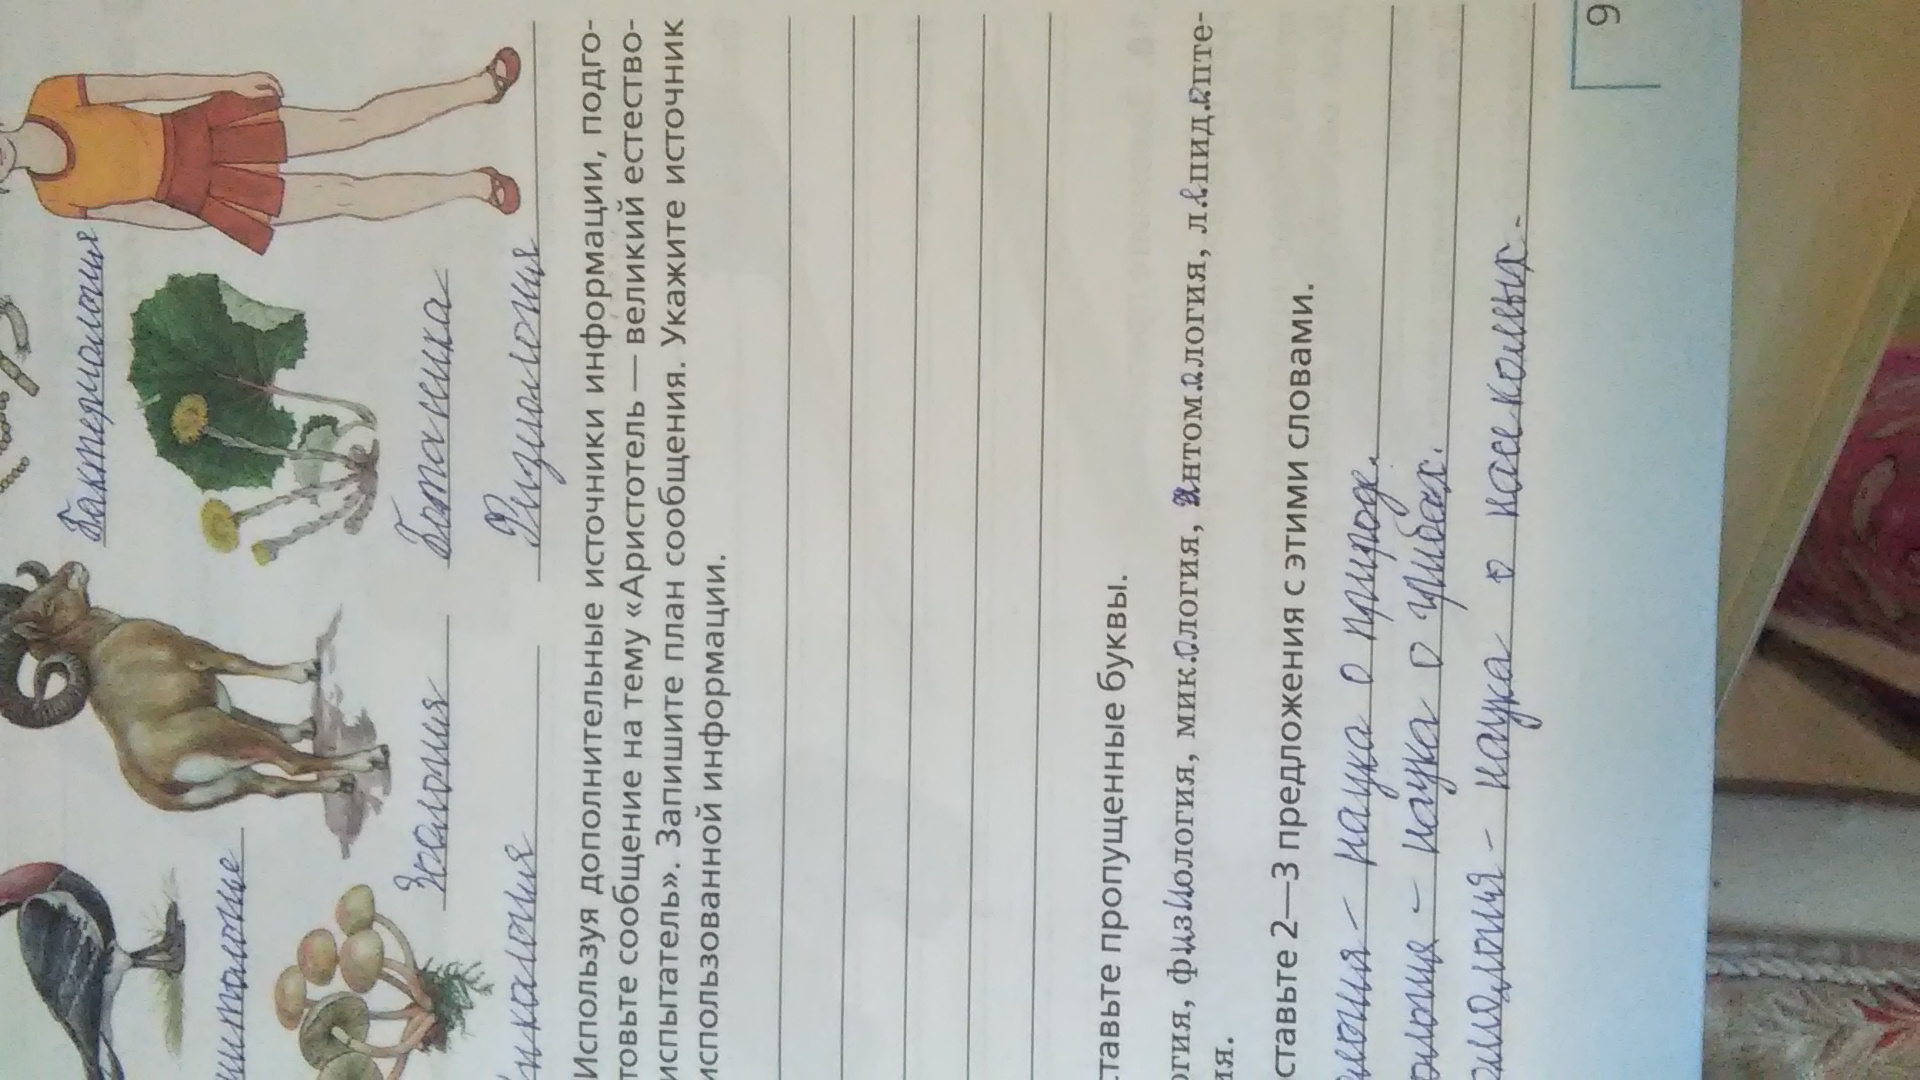 Бактериология
Ботаника
Зоология
Физиология
Используя дополнительные источники информации, подго-
товьте сообщение на тему «Аристотель — великий естество-
испытатель». Запишите план сообщения. Укажите источник
использованной информации.
ставьте пропущенные буквы.
огия, физиология, микология, энтомология, лепидопте-
ия.
ставьте 2—3 предложения с этими словами.
наука о природе.
наука о грибах.
наука о насекомых.
9